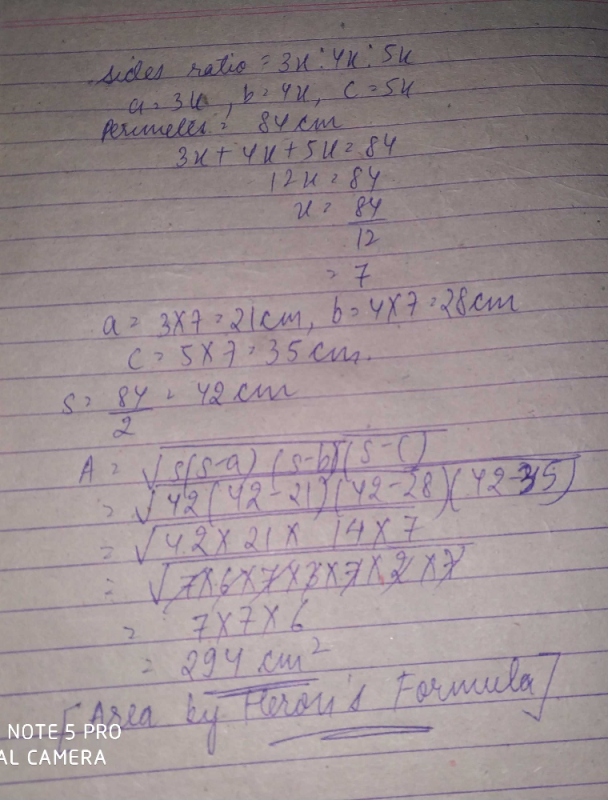 sides ratio = 3x : 4x : 5x
a = 3x, b = 4x, c = 5x
Perimeter = 84 cm
3x + 4x + 5x = 84
12x = 84
x = 84
12
= 7
a = 3×7 = 21cm, b = 4×7 = 28cm
c = 5×7 = 35 cm.
s = 84/2 = 42 cm
A = √s(s-a) (s-b)(s-c)
= √42(42-21)(42-28)(42-35)
= √42×21× 14×7
= √7×6×7×3×7×2×7
= 7×7×6
= 294 cm²
[Area by Heron's Formula]
NOTE 5 PRO
AL CAMERA